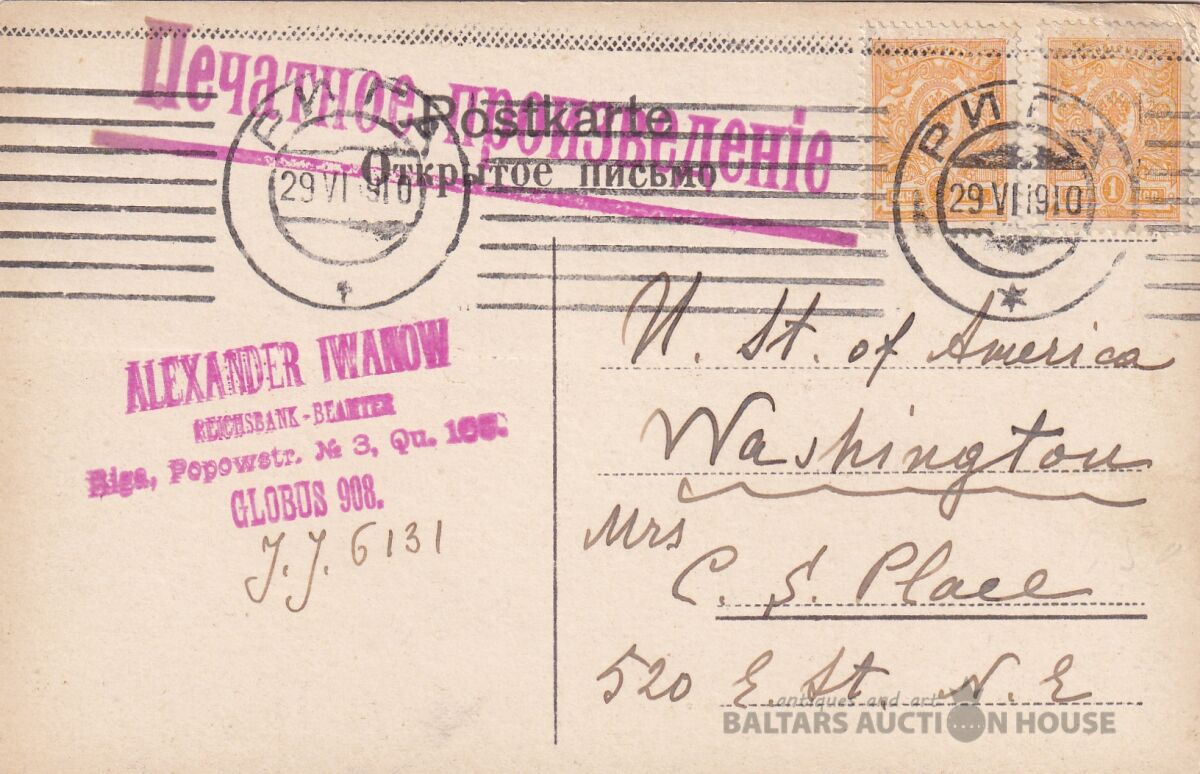 Печатное произведеніе
Postkarte
Открытое письмо
РИГА
29 VI 1910
РИГА
29 VI 1910
1
ALEXANDER IWANOW
REICHSBANK-BEAMTER
Riga, Popowstr. № 3, Qu.
GLOBUS 908.
J. J. 6131
U. St. of America
Washington
Mrs
C. S. Place
520 E. St. N. E
antiques and art
BALTARS AUCTION HOUSE